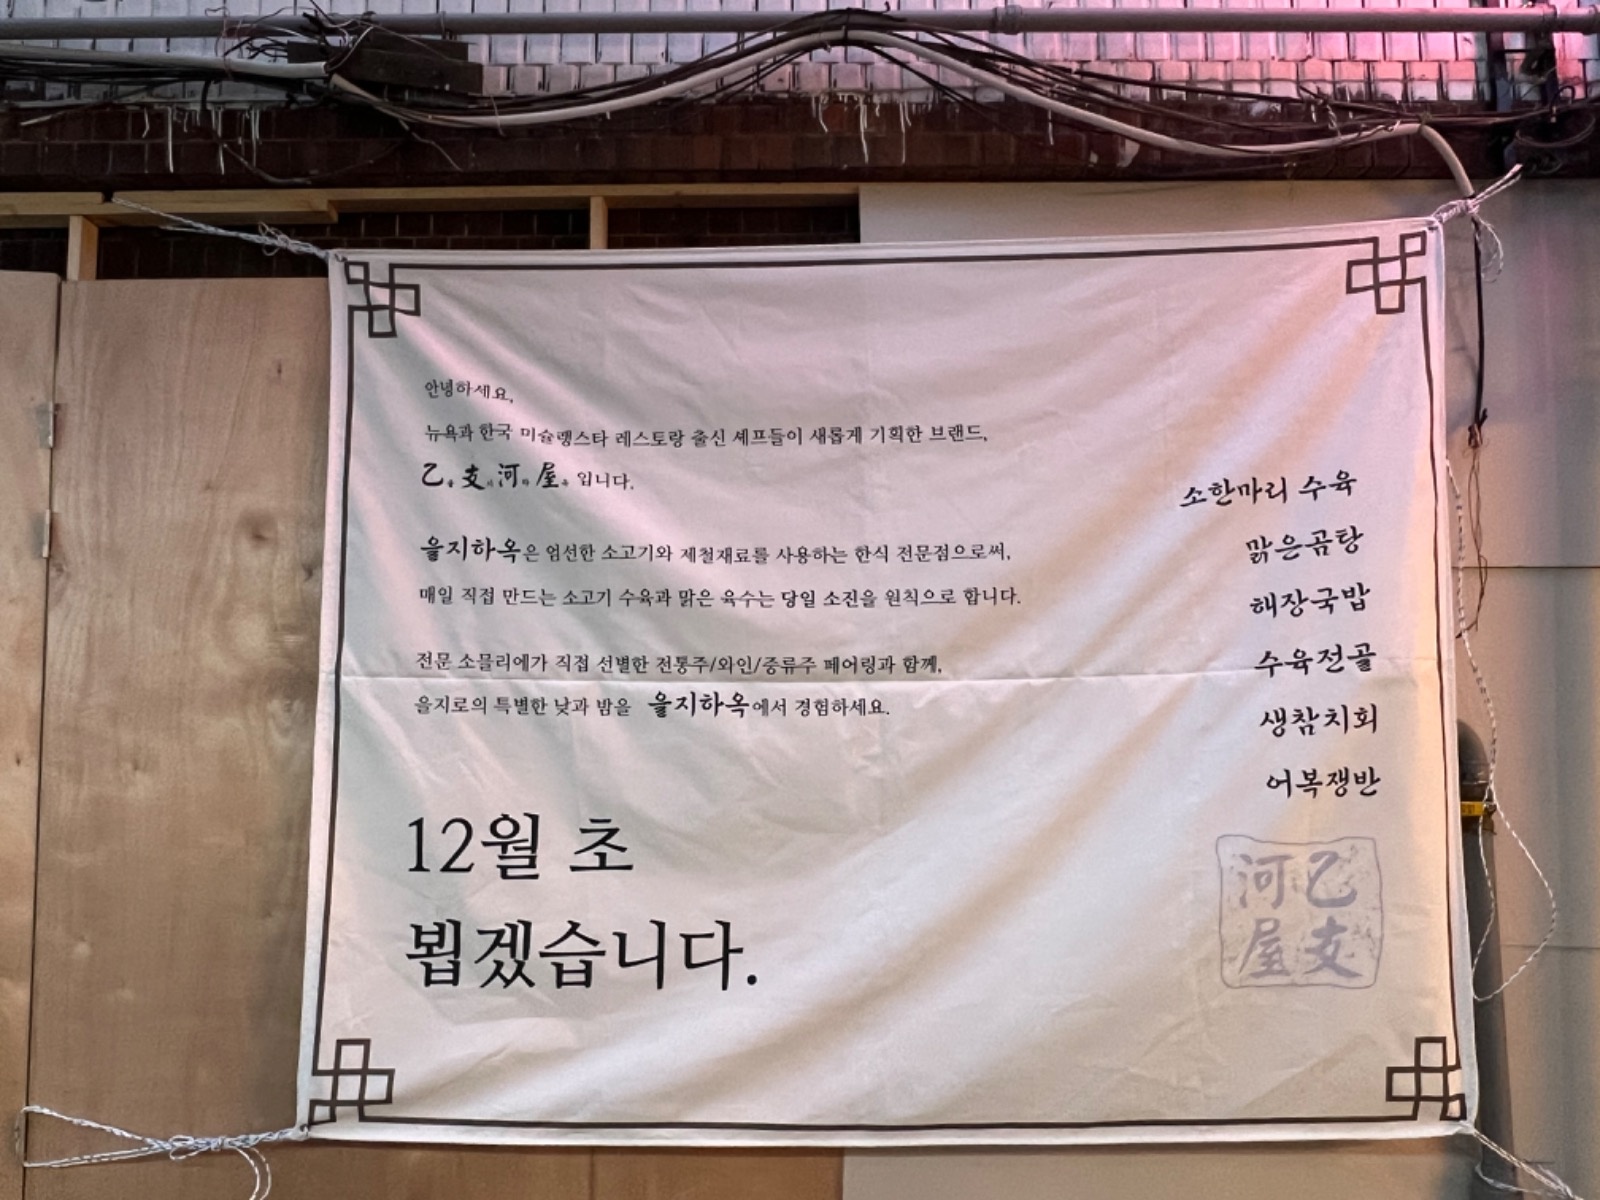 안녕하세요,
뉴욕과 한국 미슐랭스타 레스토랑 출신 셰프들이 새롭게 기획한 브랜드,
乙을 支지 河하 屋옥 입니다.
을지하옥은 엄선한 소고기와 제철재료를 사용하는 한식 전문점으로써,
매일 직접 만드는 소고기 수육과 맑은 육수는 당일 소진을 원칙으로 합니다.
전문 소믈리에가 직접 선별한 전통주/와인/증류주 페어링과 함께,
을지로의 특별한 낮과 밤을 을지하옥에서 경험하세요.
12월 초
뵙겠습니다.
소한마리 수육
맑은곰탕
해장국밥
수육전골
생참치회
어복쟁반
乙支
河屋